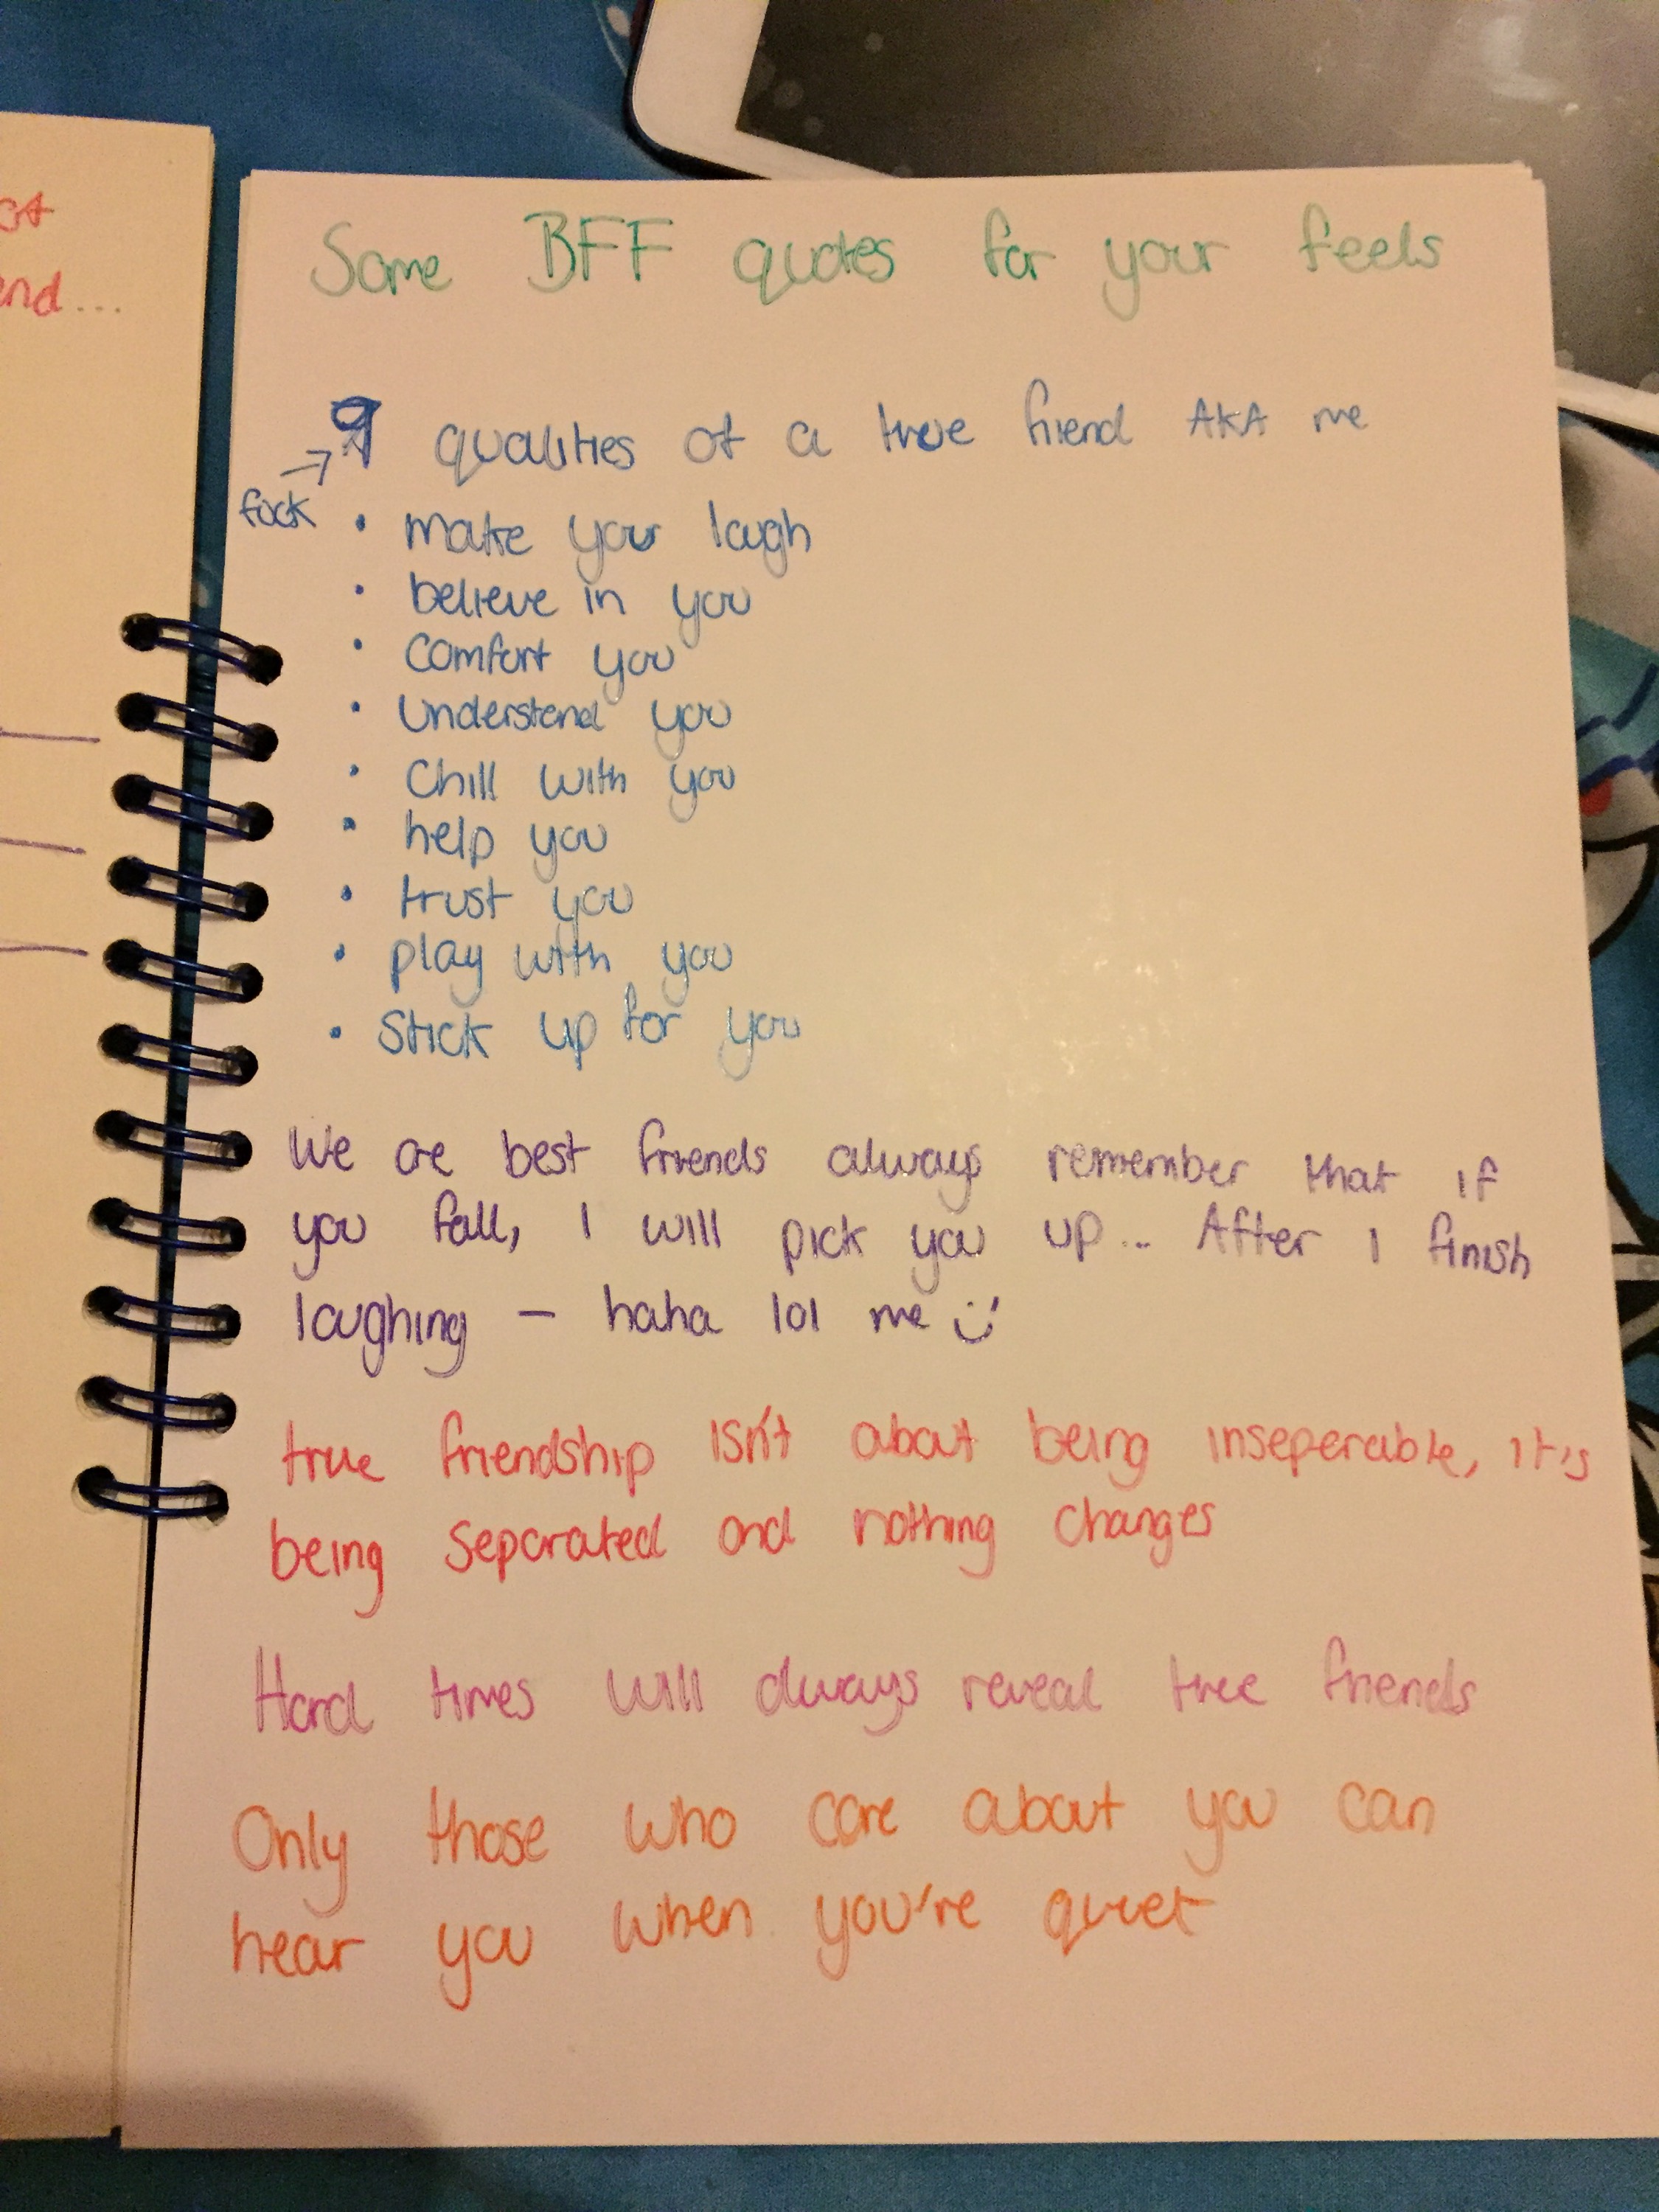 Some BFF quotes for your feels
9 qualities of a true friend AKA me
fuck
• make your laugh
• believe in you
• comfort you
• understand you
• Chill with you
• help you
• trust you
• play with you
• Stick up for you
We are best friends always remember that if
you fall, I will pick you up... After I finish
laughing – haha lol me :)
true friendship isn't about being inseperable, it's
being separated and nothing changes
Hard times will always reveal true friends
Only those who care about you can
hear you when you're quiet